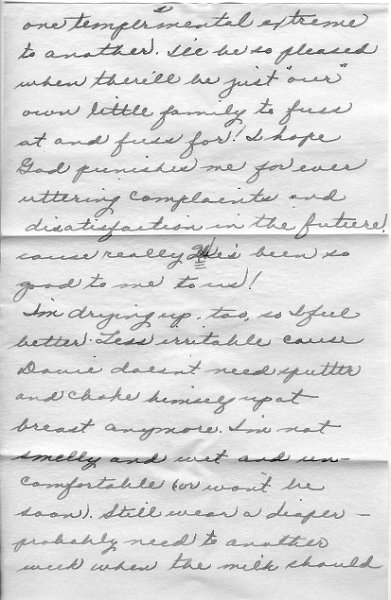 one temperimental extreme
to another. I'll be so pleased
when there'll be just "our"
own little family to fuss
at and fuss for! I hope
God punishes me for ever
uttering complaints and
disatisfaction in the future!
cause really He's been so
good to me to us!
I'm drying up, too, so I feel
better. Less irritable cause
Davie doesn't need sputter
and choke himself up at
breast anymore. I'm not
smelly and wet and un-
comfortable (or won't be
soon). Still wear a diaper -
probably need to another
week when the milk should